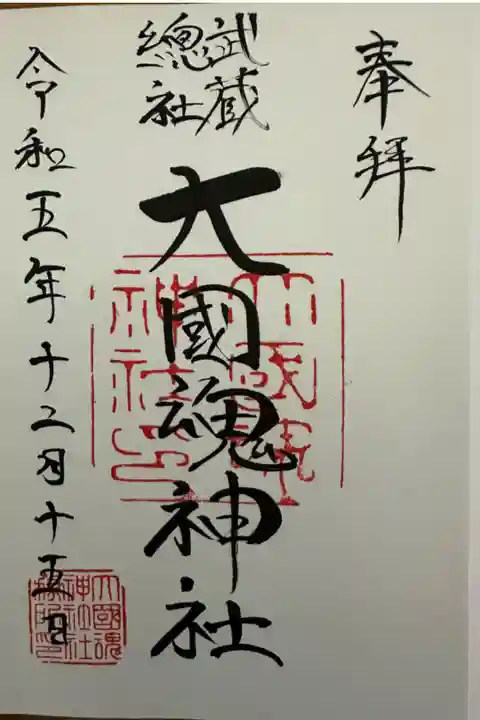 奉拝
武蔵
總社
大國魂神社
令和五年十二月十五日
大國魂
神社印
大國魂
神社社
務所印